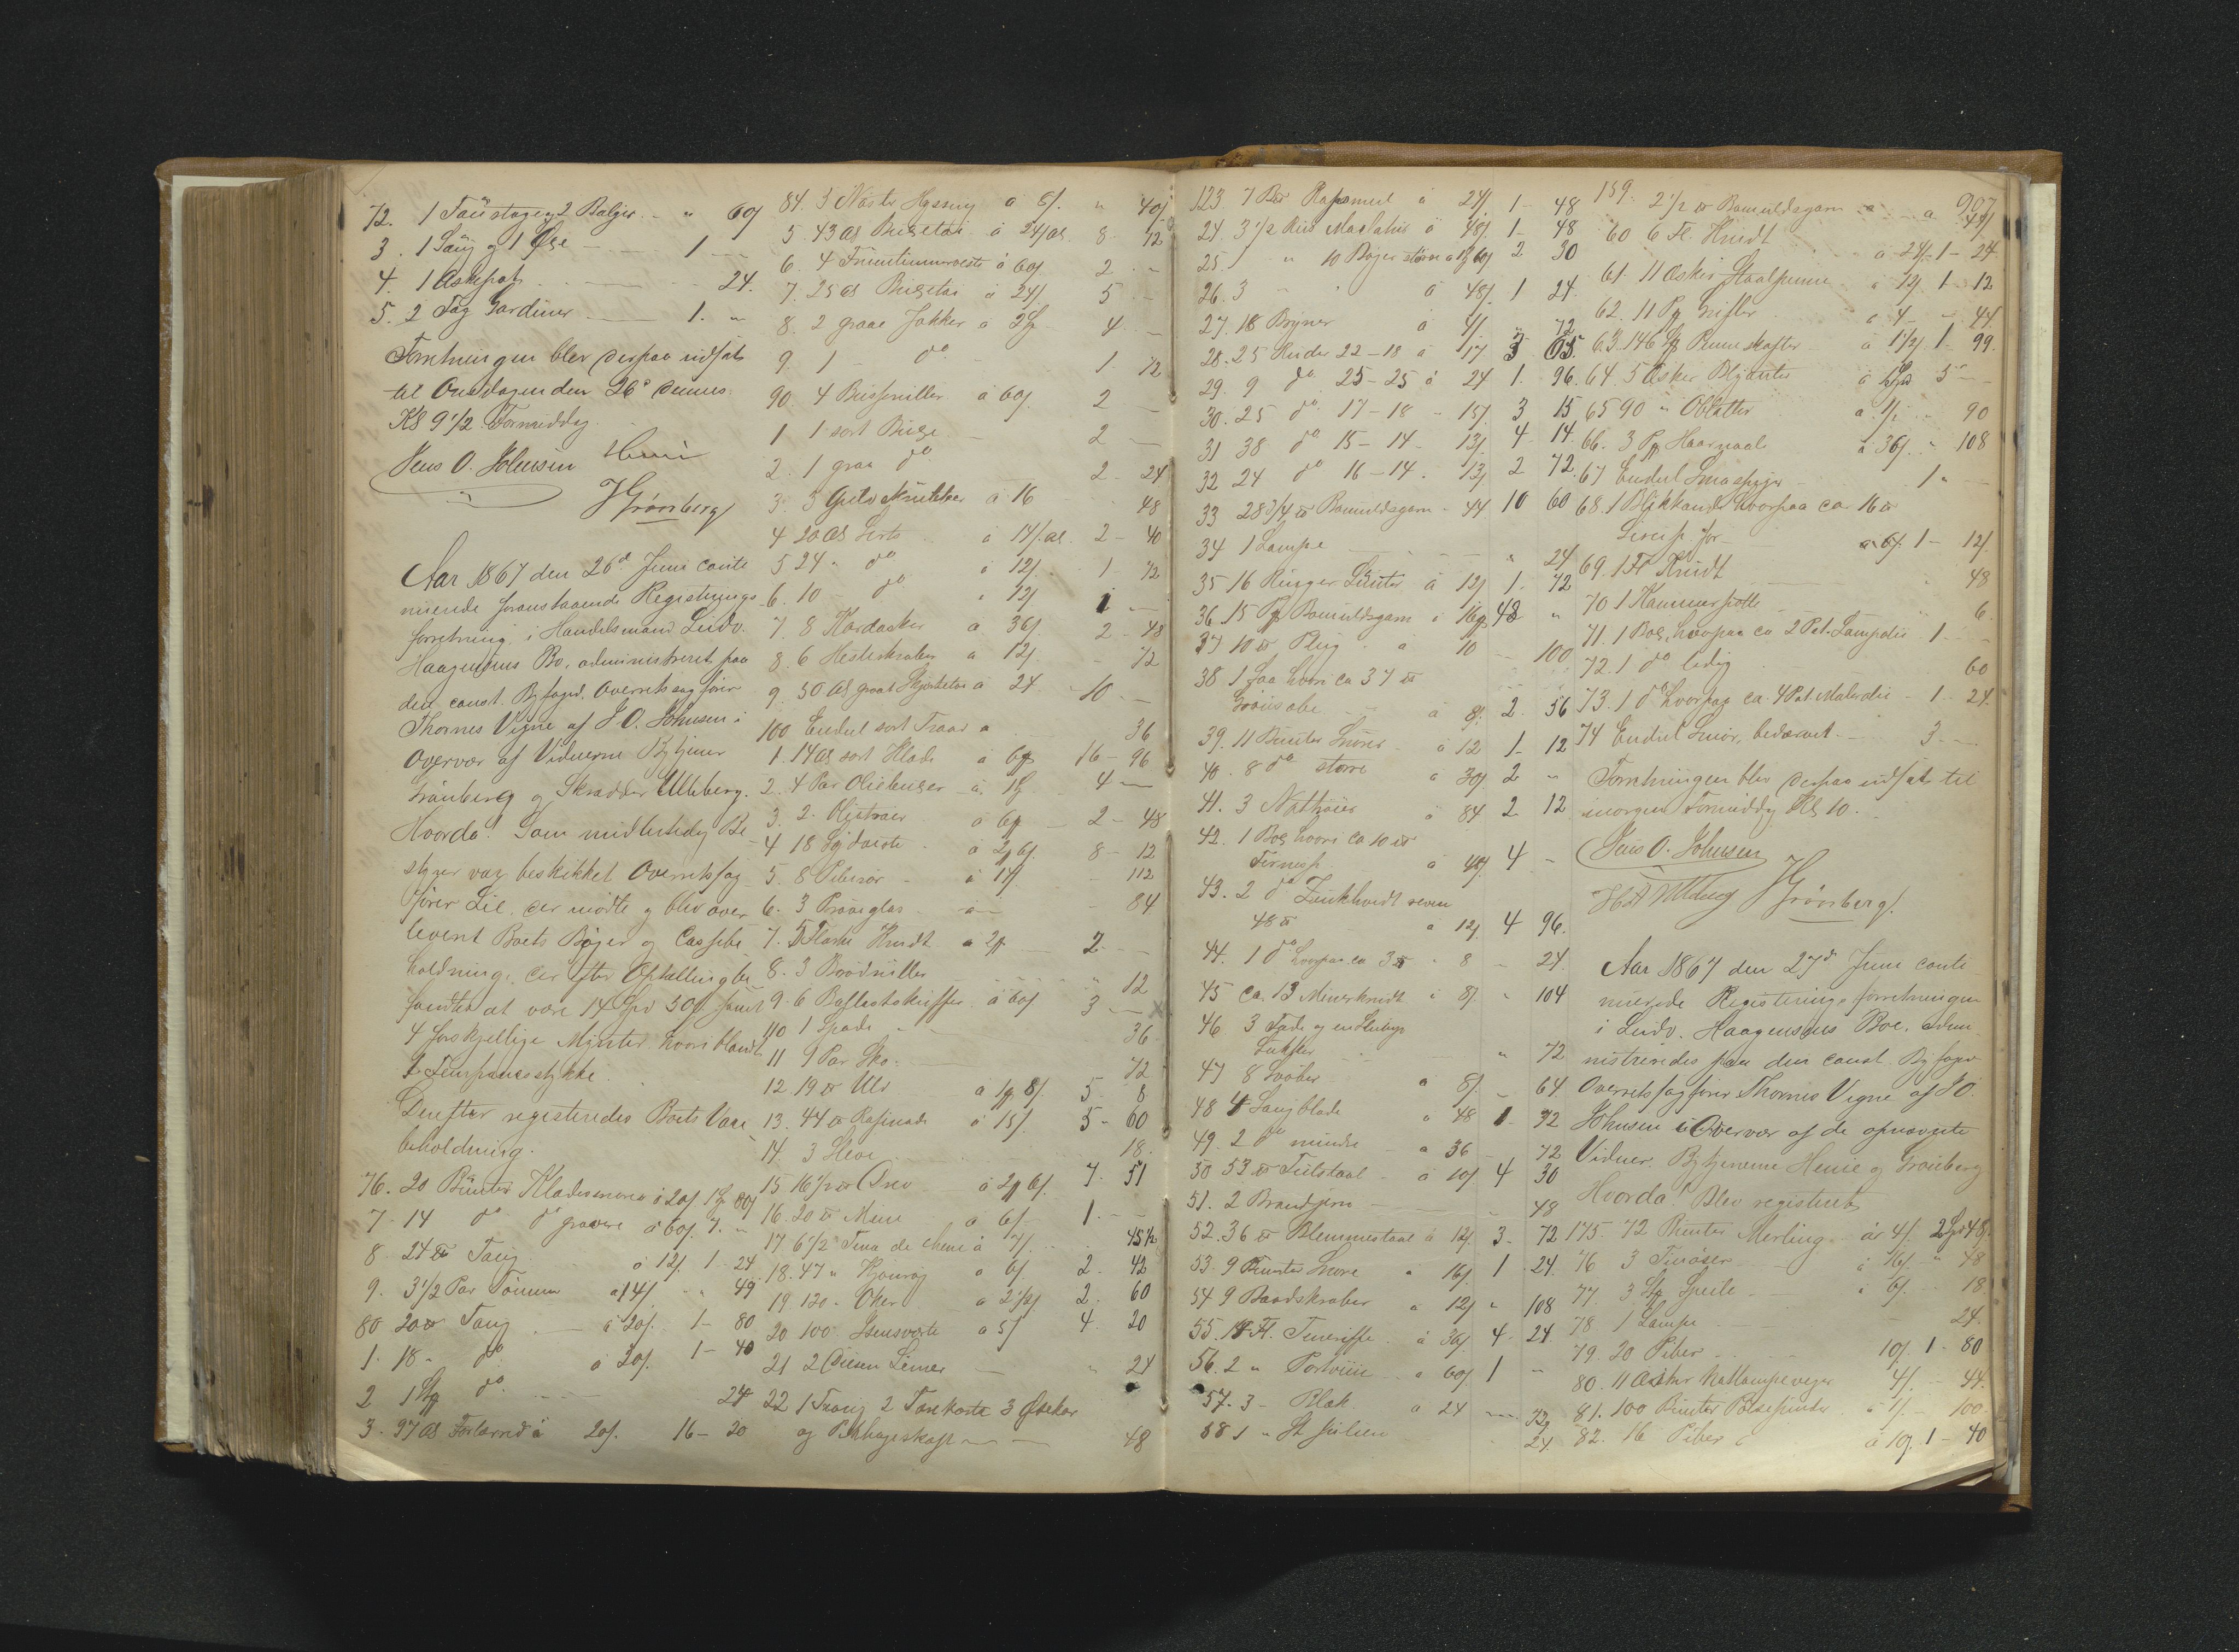 72. 1 Taustage, 2 Baljer - " 60ſ
3. 1 Saug og 1 Øxe - 1 -
4. 1 Askepot - 24.
5. 2 Fag Gardiner - 1. "
Forretningen blev derpaa udsat
til Onsdagen den 26de dennes
Kl 9 1/2 Formiddg.
Jens O. Johnsen
JGrønberg
Aar 1867 den 26de Juni conti
nuerede foranstaaende Registrerings
forretning i Handelsmand Ludv.
Haagensens Bo, administreret paa
den const. Byfoged, Overretssagfører
Thornes Vegne af J. O. Johnsen i
Overvær af Vidnerne Bytjener
Grønberg og Skrædder Ulleberg.
Hvorda: Som midlertidig Be
styrer var beskikket Overretssag
fører Lie, der mødte og blev over
leveret Boets Bøger og Cassebe
holdning, der efter Optælling be
fandtes at være 14 Spd 50ſ samt
4 forskjellige Mynter hvoriblandt
1 Femfrancsstykke.
Derefter registreredes Boets Vare
beholdning.
76. 20 Bunter Klædesnorer à 20ſ
7. 14 do do grovere à 60ſ 7. "
8 24 ℔ Taug à 12ſ 1 24
9. 3 1/2 Par Tømmer à 14ſ " 49
80 20 ℔ Taug - à 20ſ. 1 - 80
1. 18 " do à 20ſ. 1 - 40
2 1 Stk do - 24
3. 97 Al Forlærred à 20ſ. 16 - 20
84. 3 Nøster Hyssing à 6ſ. " 40ſ
5. 43 Al Buxetøi à 24ſ Al. 8 - 72
6. 4 Fruentimmerveste à 60ſ 2 - "
7. 25 Al Buxetøi à 24ſ 5 -
8. 2 graae Jakker à 2 Sp - 4 -
9. 1 - do - 1. 72
90. 4 Busseruller à 60ſ 2 -
1 1 sort Buxe - 2 -
2. 1 graa do 2 - 24
3. 3 à 16 48
4 20 Al Serts à 14ſ. Al. 2 - 40
5 24 " do à 12ſ. 1 72
6. 10 - do " 12ſ 1 -
7. 8 Kardæsker à 36ſ 2 - 48
8. 6 Hesteskraber à 12ſ. - 72
9. 50 Al graat Skjortetøi à 24 - 10 -
100 Endel sort Traad a 36
1. 14 Al sort Klæde à 16 - 96
2. 4 Par Oliebuxer - à 4 -
3. 2. Oljetrøier à - 2 - 48
4 18 Sydveste à 8 - 12
5. 8 Piberør - à 14ſ - 112
6. 3 Prøveglas - a - 84
7. 5 Flaske Krudt à 2 -
8. 3 Brødruller
12
9. 6 Bastostskuffer à 60ſ 3 -
110 1 Spade - 36
11 9 Par Sko - 72
12. 19 ℔ Uld à 8ſ 5 - 8
13. 44 ℔ Rafinade à 15ſ. 5 - 60
14. 3 18.
15 16 1/2 ℔ 7. 51
16. 20 ℔ Mine à 6ſ. 1. -
17 6 1/2 " à 7ſ 45 1/2
18. 47 " Kjønrøg à 6ſ 2. 42
19. 120 " Oker à 2 1/2ſ 2. 60
20. 100 Jernsværte à 5ſ 4. 20
21 2 Limer - " 24
22 1 Traug 2 3 Øsekar
og - 48
123 7 Bøs Rapsmel à 24ſ 1 - 48
24. 3 1/2 Ris Maclatur à 48ſ 1 - 48
25. 1 " 10 Bøger større à 2 30
26. 3 " " à 48ſ 1 24.
27. 18 Bryner à 4ſ " 72
28. 25 Ruder 22 - 18 à 17 3 65.
29. 9 do 25 - 25 à 24 1. 96.
30. 25 do 17 - 18 - 15ſ. 3 15
31 38 do 15 - 14 - 13ſ. 4 - 14.
32 24 do 16 - 14. 13ſ 2 72.
33 28 3/4 ℔ Bomuldsgarn - 44 10 60
34 1 Lampe - " 24
35 16 Ringer Lunter à 12ſ 1. 72
36. 15 Bomuldsgarn à 16ſ 48 "
37 10 ℔ Plug à 10 - 100
38 1 Saa hvori ca 37 ℔
Grønsæbe à 8ſ. 2. 56
39. 11 Bunter Snører à 12 1 - 12
40. 8 do større à 30ſ 2 "
41. 3 Nattrøier à 84 2 12
42. 1 Box hvori ca 10 ℔
Fernis à 40ſ 4 -
43. 2 do Zinkhvidt
48 ℔ à 12ſ 4 96.
44. 1 do hvorpaa ca 3 ℔ - 8 - 24.
45 ca. 13 Minerkrudt à 8ſ. " 104
46 3 Fade og en
" 72
47 8 Svøber à 8ſ - 64
48 4 Saugblade à 48 1 - 72
49. 2 do mindre à 36 - 72
50 53 ℔ Fiilstaal - à 10ſ 4 30
51. 2 Brandjern - 48
52. 36 ℔ Blemmestaal à 12ſ. 3 - 72
53. 9 Bunter Snøre à 16ſ 1 - 24.
54. 9 Baadskraber à 12ſ " 108
55. 14 Fl. Teneriffe à 30ſ 4 - 24
56. 2 " Portviin - à 60ſ 1 -
57. 3 - Blæk à 24 - 72
58 1 " St Julien 24
159. 2 1/2 ℔ Bomuldsgarn
907
60 6 Fl. Krudt à 24ſ. 1 - 24
61. 11 Æsker Staalpenne à 12ſ 1 - 12
62. 11 Pk Grifler à 4 - 44
63. 146 Stk Penneskafter à 1 1/2ſ 1 - 99.
64. 5 Æsker Blyanter à 5 -
65 90 " Oblatter à 1ſ. 90
66. 3 Pk Haarnaal à 36ſ. " 108
67 Endel Smaspiger 1 " -
68. 1 Blikkande hvorpaa ca 16 ℔
à 6ſ. 1 - 12ſ.
69. 1 Fl Krudt - 48
70 1 Kammerpotte 6.
71. 1 Box, hvorpaa ca 2 Pot Lampolie - 1 -
72. 1 do ledig 60
73. 1 do hvorpaa ca. 4 Pot Malerolie - 1 - 24.
74 Endel Smør, bedærvet - 3 -
Forretningen blev derpaa udsat til
imorgen Formiddg Kl 10.
Jens O. Johnsen
JGrønberg.
Aar 1867 den 27de Juni conti
nuerede Registreringsforretningen
i Ludv. Haagensens Boe, admi
nistreredes paa den const. Byfoged
Overretssagfører Thornes Vegne af J O.
Johnsen i Overvær af de opnævnte
Vidner, Bytjenerne Henie og Grønberg
Hvorda: Blev registreret
175. 72 Bunter Merling à 4ſ. 2 Spd 48ſ
76 3 à 16ſ. " 48
77. 3 Stk Speile - à 6ſ. 18
78 1 Lampe - 24.
79. 20 Piber - 10ſ 1 - 80
80. 11 Æsker Natlampevæger 4ſ. - 44.
81. 100 Bunter Pølsepinder à 1ſ - 100.
82. 16 Piber à 10ſ. 1 - 40